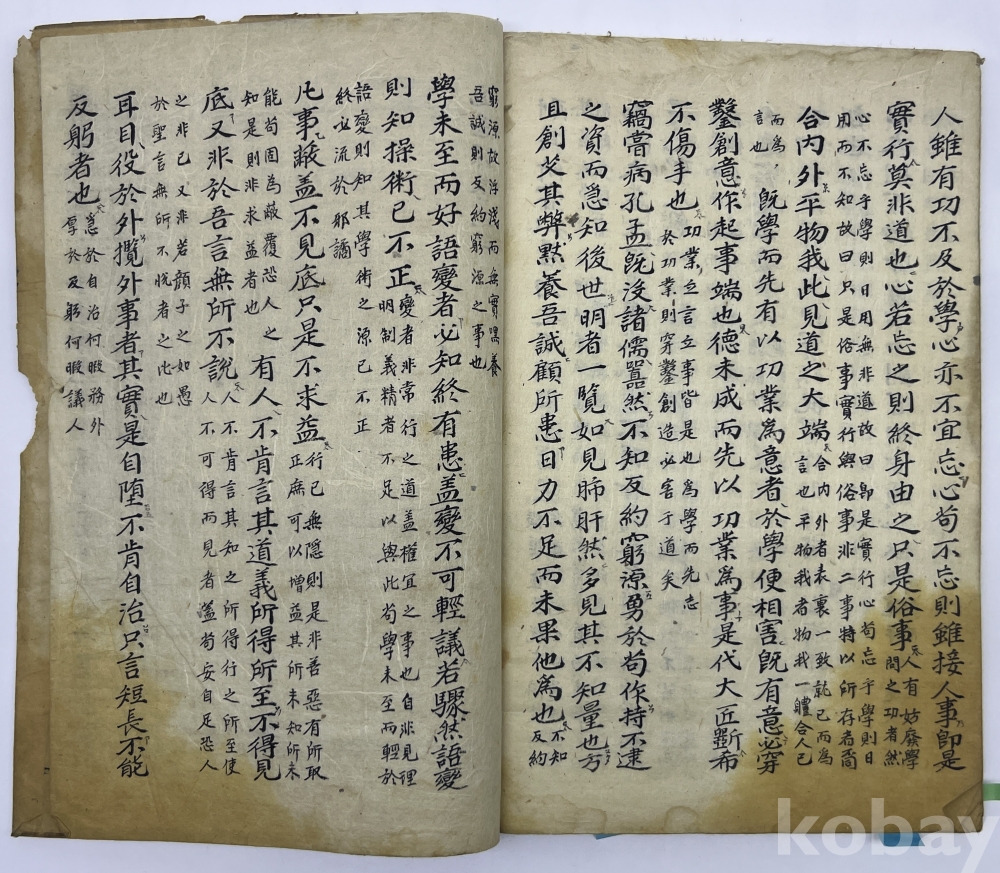 人雖有功不及於學心亦不宜忘心苟不忘則雖接人事卽是
實行莫非道也心若忘之則終身由之只是俗事
人有妨廢學
問之功者然
心不忘乎學則日用無非道故曰卽是實行心苟忘乎學則日
用而不知故曰只是俗事實行與俗事非二事特以所存者
合內外平物我此見道之大端
合內外者表裏一致就己而爲
言也平物我者物我一體合人己
而爲
言也
旣學而先有以功業爲意者於學便相害旣有意必穿
鑿創意作起事端也德未成而先以功業爲事是代大匠斲希
不傷手也
功業立言立事皆是也爲學而先志
於功業則穿鑿創造必害于道矣
竊嘗病孔孟旣沒諸儒囂然不知反約窮源勇於苟作持不逮
之資而急知後世明者一覽如見肺肝然多見其不知量也方
且創艾其弊默養吾誠顧所患日力不足而未果他爲也
不知
反約
窮源故浮淺而無實默養
吾誠則反約窮源之事也
學未至而好語變者必知終有患盖變不可輕議若驟然語變
則知操術已不正
變者非常行之道盖權宜之事也自非見理
明制義精者不足以與此苟學未至而輕於
語變則知其學術之源已不正
終必流於邪譎
凡事蔽盖不見底只是不求益
行己無隱則是非善惡有所取
正庶可以增益其所未知所未
能苟固爲蔽覆恐人之
知是則非求益者也
有人不肯言其道義所得所至不得見
底又非於吾言無所不說
人不肯言其知之所得行之所至使
人不可得而見者蓋苟安自足恐人
之非己又非若顔子之如愚
於聖言無所不悅者之比也
耳目役於外攬外事者其實是自墮不肯自治只言短長不能
反躬者也
急於自治何暇務外
厚於反躬何暇議人
kobay